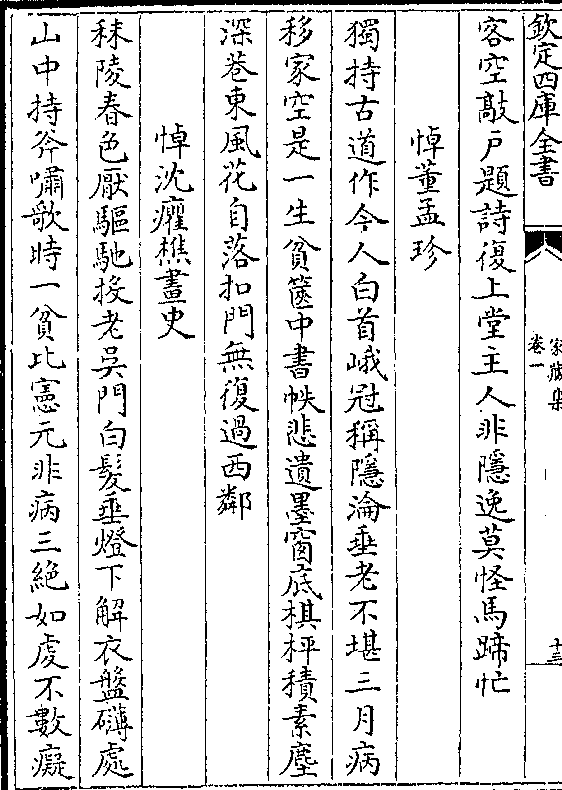 欽定四庫全書
家藏集
卷一
十三
客空敲戸題詩復上堂主人非隱逸莫怪馬蹄忙
悼董孟珍
獨持古道作今人白首峨冠稱隱淪垂老不堪三月病
移家空是一生貧篋中書帙悲遺墨窗底棋枰積素塵
深巷東風花自落扣門無復過西鄰
悼沈癯樵畫史
秣陵春色厭驅馳投老吳門白髮垂燈下解衣盤礴處
山中持斧嘯歌時一貧比憲元非病三絶如虔不數癡